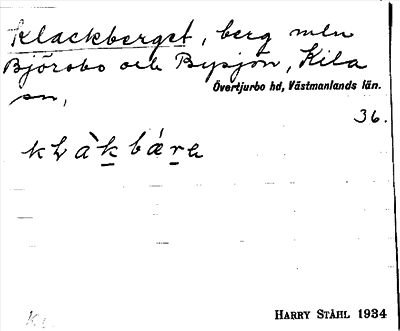 Klackberget, berg mln
Björsbo och Bysjön, Kila
sn,
Övertjurbo hd, Västmanlands län.
36.
HARRY STÅHL 1934